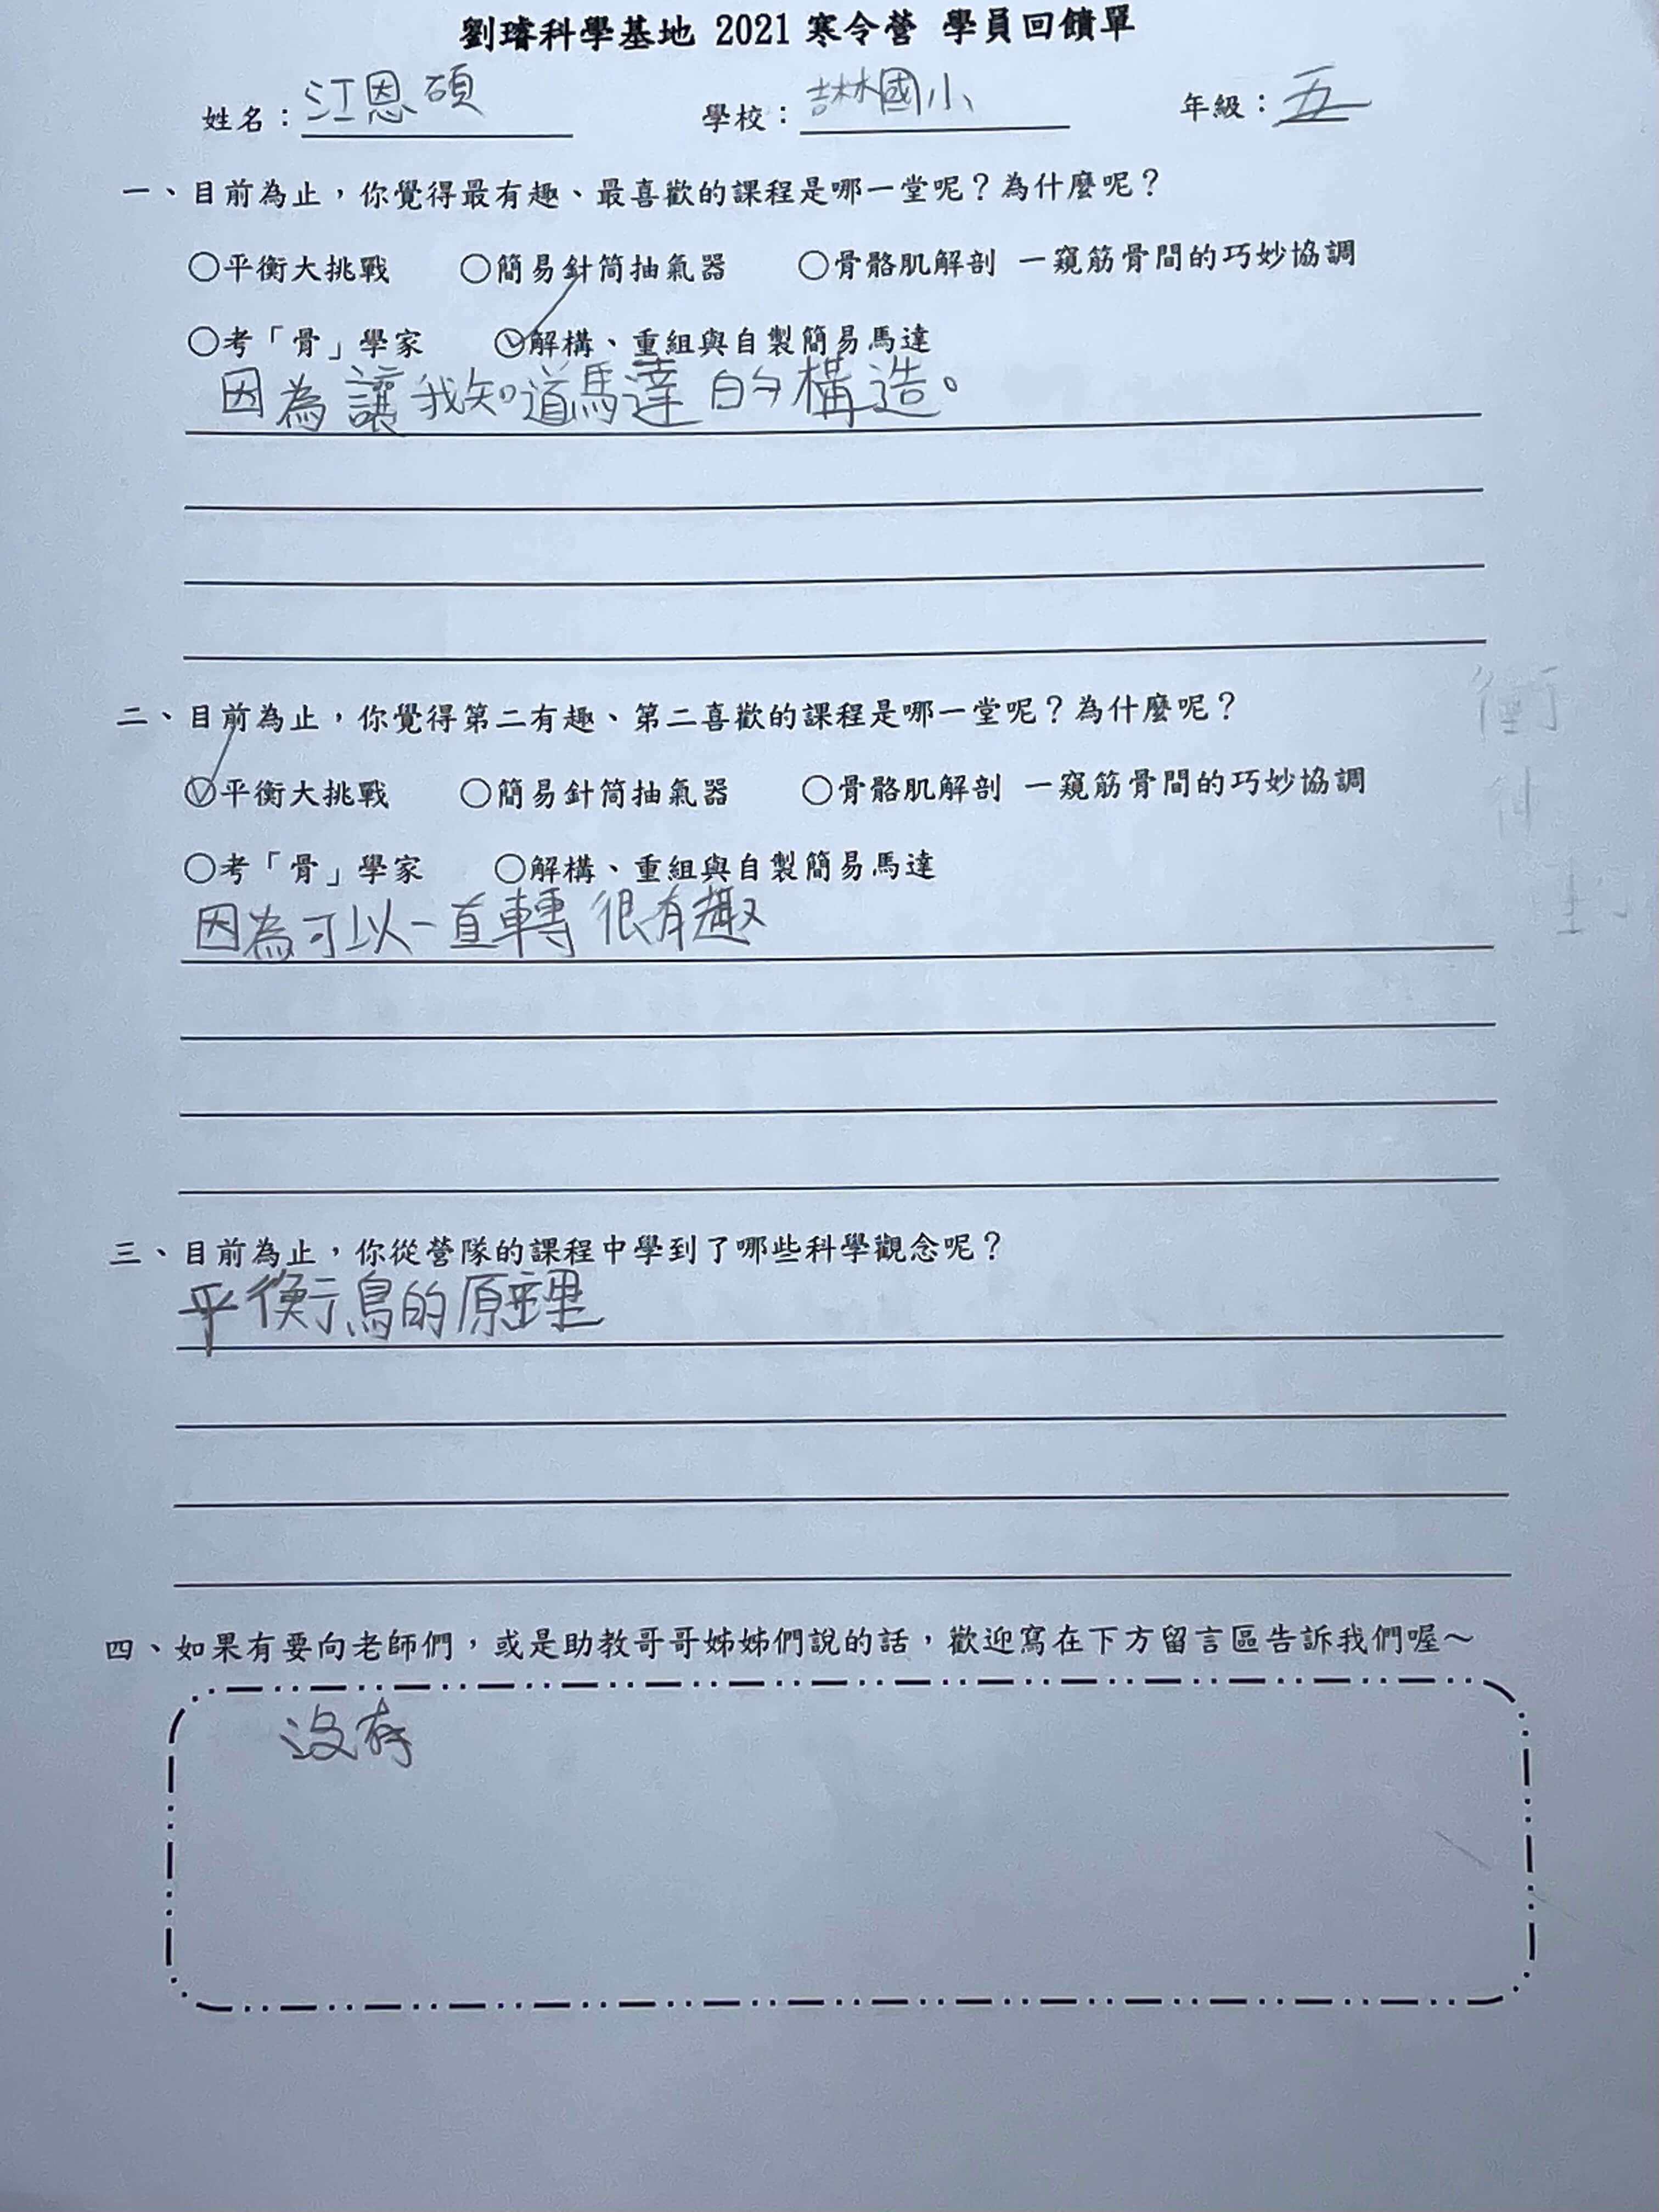 劉璿科學基地 2021 寒令營 學員回饋單
姓名：江恩碩 學校： 國小 年級：五
一、目前為止，你覺得最有趣、最喜歡的課程是哪一堂呢？為什麼呢？
○平衡大挑戰 ○簡易針筒抽氣器 ○骨骼肌解剖 一窺筋骨間的巧妙協調
○考「骨」學家 ○解構、重組與自製簡易馬達
因為讓我知道馬達的構造。
二、目前為止，你覺得第二有趣、第二喜歡的課程是哪一堂呢？為什麼呢？
○平衡大挑戰 ○簡易針筒抽氣器 ○骨骼肌解剖 一窺筋骨間的巧妙協調
○考「骨」學家 ○解構、重組與自製簡易馬達
因為可以一直轉很有趣
三、目前為止，你從營隊的課程中學到了哪些科學觀念呢？
平衡鳥的原理
四、如果有要向老師們，或是助教哥哥姊姊們說的話，歡迎寫在下方留言區告訴我們喔～
沒有